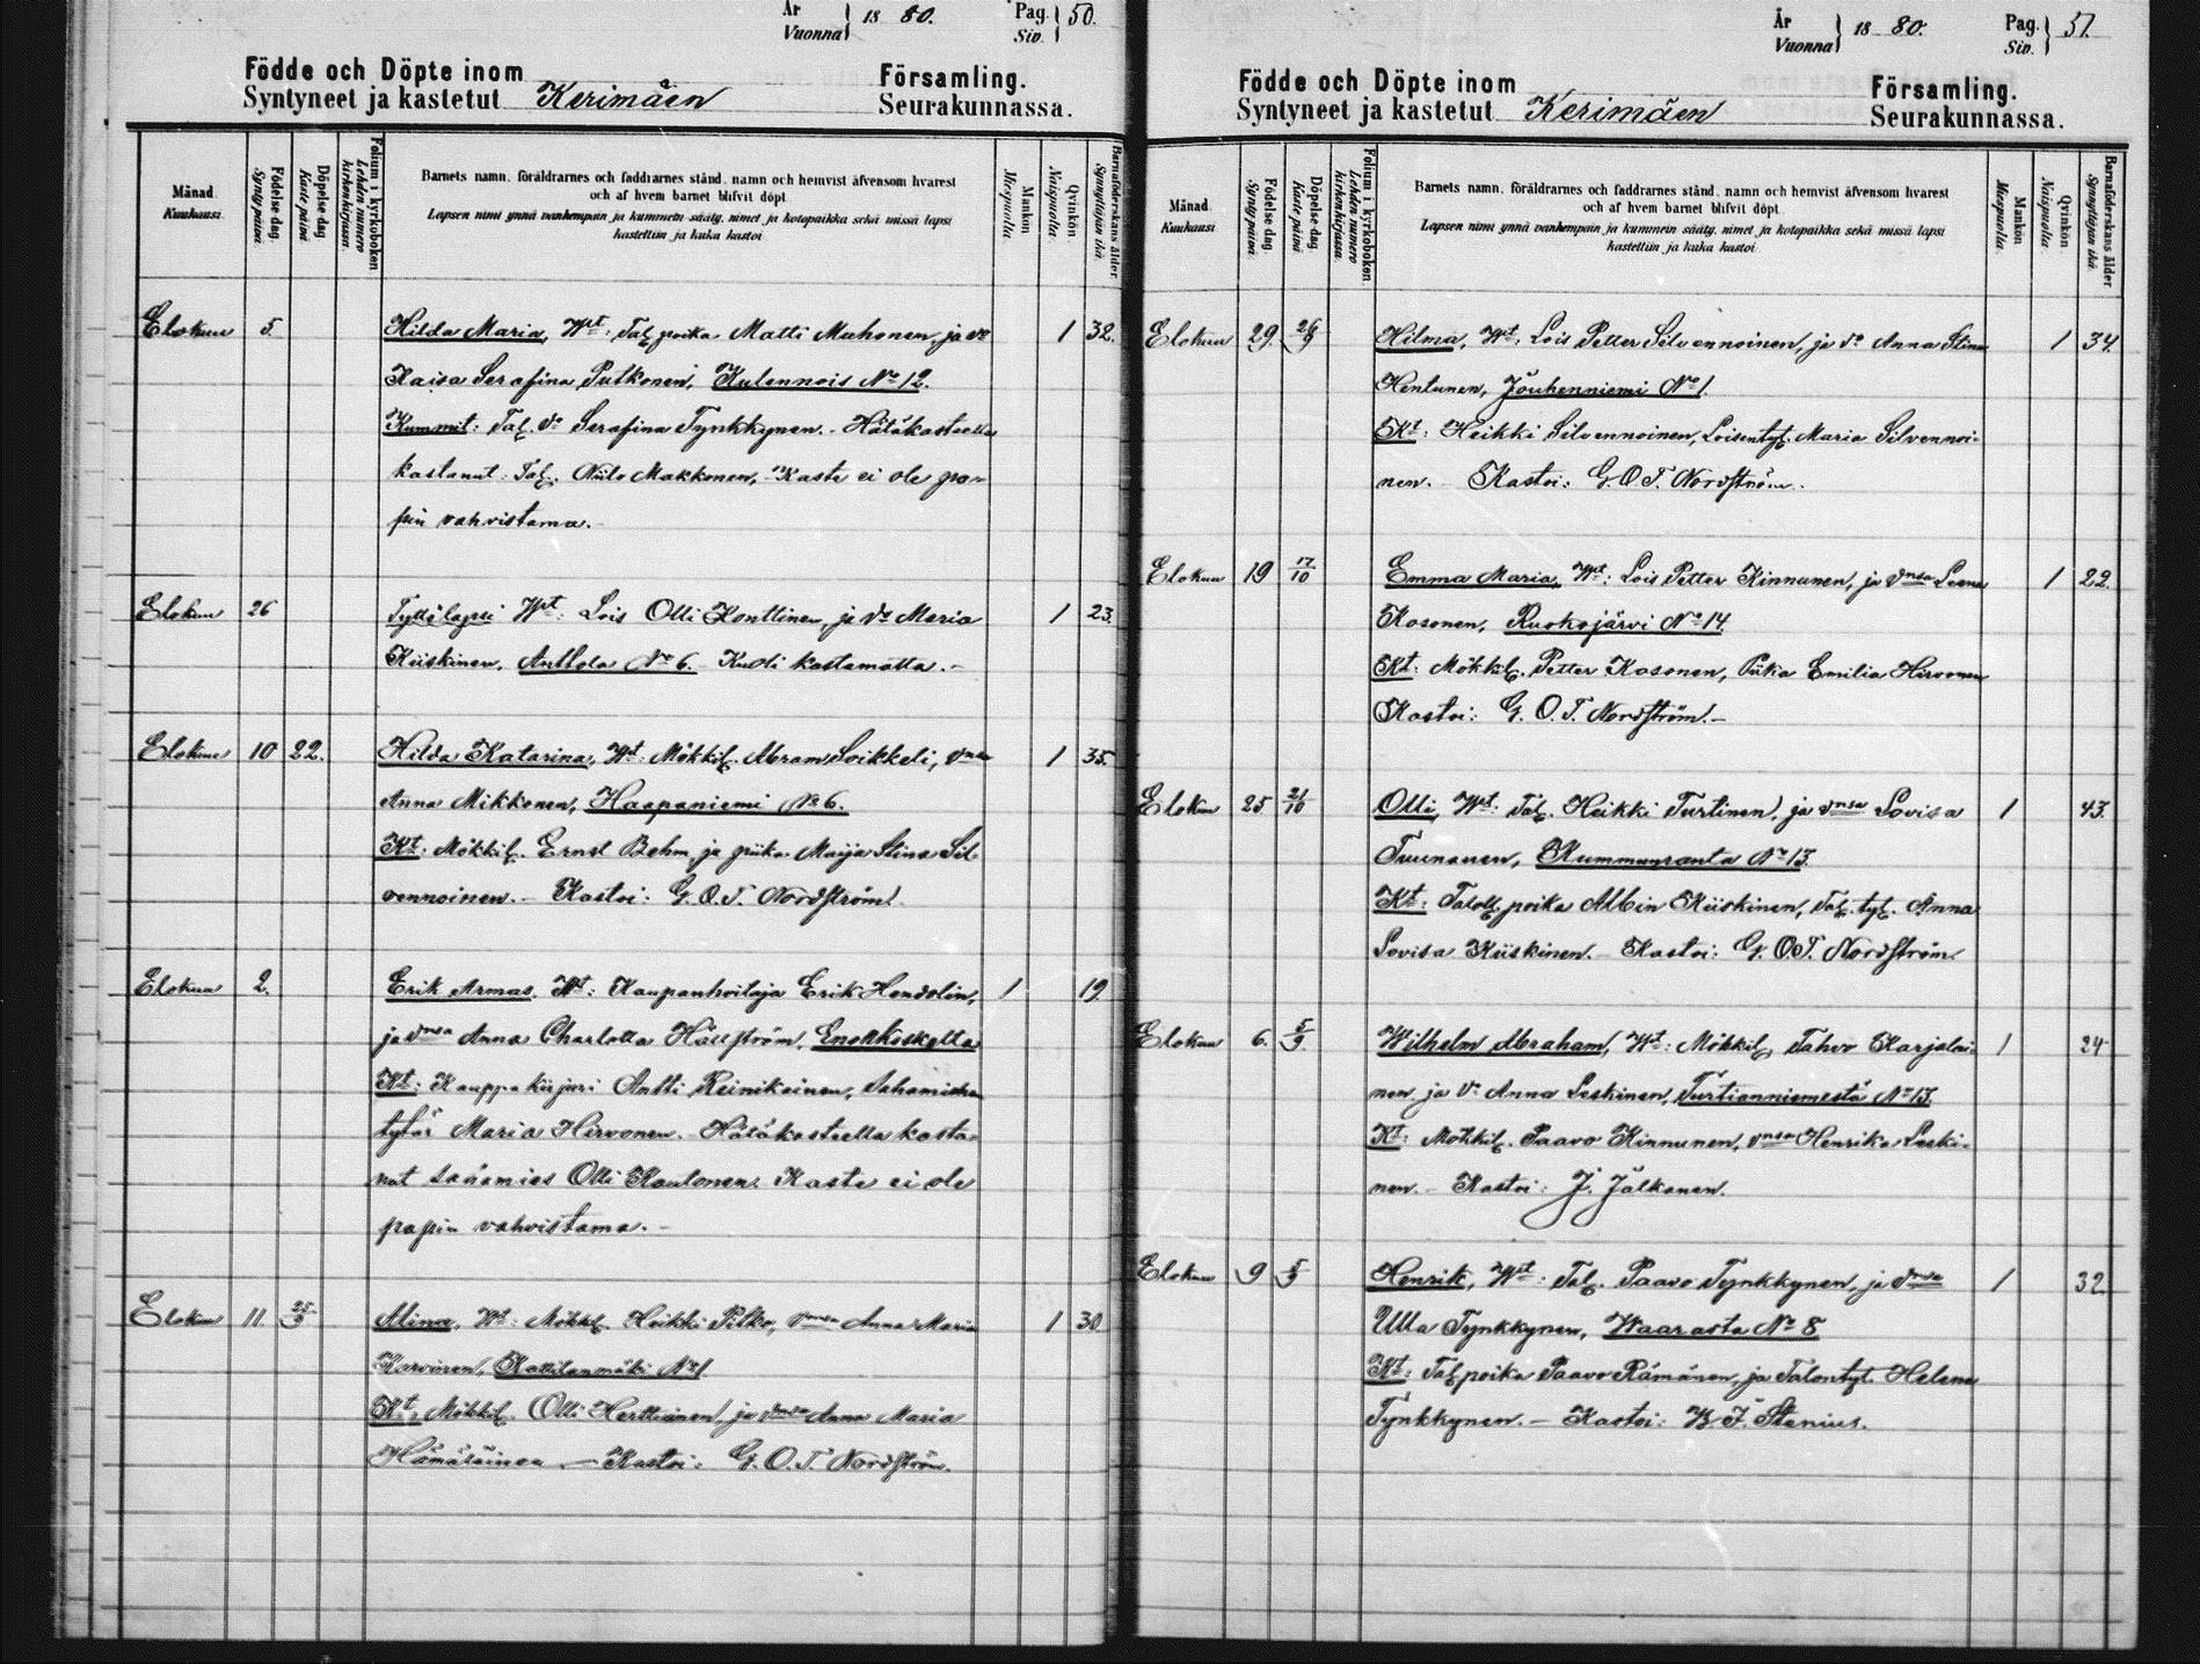 År
Vuonna 18 80.
Pag.
Siv. 50.
Födde och Döpte inom
Syntyneet ja kastetut Kerimäen
Församling.
Seurakunnassa.
Månad.
Kuukausi.
Födelse dag.
Synty päivä.
Döpelse dag
Kaste päivä
Folium i kyrkoboken
Lehden numero
kirkonkirjassa.
Barnets namn, föräldrarnes och faddrarnes stånd, namn och hemvist äfvensom hvarest
och af hvem barnet blifvit döpt.
Lapsen nimi ynnä vanhempain ja kummein sääty, nimet ja kotopaikka sekä missä lapsi
kastettiin ja kuka kastoi
Mankön
Miespuolia
Qvinkön
Naispuolia.
Barnaföderskans ålder
Synnyttäjän ikä.
Elokuu 5. Hilda Maria, Wt: Tal. poika Matti Muhonen, ja vo 1 32.
Kaisa Serafina Putkonen, Kulennois No 12.
Kummit: Tal. vo Serafina Tynkkynen. - Hätäkasteella
kastanut Tal. Niilo Makkonen, Kaste ei ole pa-
pin vahvistama.
Elokuu 26 Tyttölapsi Wt: Lois Olli Konttinen, ja vo Maria 1 23.
Kiiskinen, Anttola No 6. Kuoli kastamatta. -
Elokuu 10 22. Hilda Katarina, Wt: Mökkil. Abram Soikkeli, vnsa 1 35.
Anna Mikkonen, Haapaniemi No 6.
Kt: Mökkil. Ernst Bohm, ja piika Maija Stina Sil
vennoinen. - Kastoi: G. O. T. Nordström.
Elokuu 2. Erik Armas, Wt: Kaupanhoitaja Erik Hendolin, 1 19.
ja vnsa Anna Charlotta Hällström, Enonkoskelta
Kt: Kauppakirjuri Antti Reinikainen, Sahamiehen
tytär Maria Hirvonen. Hätäkasteella kasta-
nut Olli Kautonen. Kaste ei ole
papin vahvistama. -
Elokuu 11 25/9 Alina, Wt: Mökkil. Heikki Pitko, vnsa Anna Maria 1 30.
Karvinen, No 1
Kt: Mökkil. Olli Herttuainen, ja vnsa Anna Maria
Hämäläinen. - Kastoi: G. O. T. Nordström.
År
Vuonna 18 80.
Pag.
Siv. 51.
Födde och Döpte inom
Syntyneet ja kastetut Kerimäen
Församling.
Seurakunnassa.
Månad.
Kuukausi
Födelse dag.
Synty päivä.
Döpelse dag
Kaste päivä
Folium i kyrkoboken
Lehden numero
kirkonkirjassa.
Barnets namn, föräldrarnes och faddrarnes stånd, namn och hemvist äfvensom hvarest
och af hvem barnet blifvit döpt
Lapsen nimi ynnä vanhempain ja kummein sääty, nimet ja kotopaikka sekä missä lapsi
kastettiin ja kuka kastoi.
Mankön
Miespuolia.
Qvinkön
Naispuolia.
Barnaföderskans ålder
Synnyttäjän ikä.
Elokuu 29. 26/9 Hilma, Wt: Lois Petter Silvennoinen, ja vo Anna Stina 1 34.
Hentunen, Jouhenniemi No 1.
Kt: Heikki Silvennoinen, Loisentyt. Maria Silvennoi-
nen. Kastoi: G. O. T. Nordström.
Elokuu 19 17/10 Emma Maria, Wt: Lois Petter Kinnunen, ja vnsa Leena 1 22.
Kosonen, Ruokojärvi No 14.
Kt: Mökkil. Petter Kosonen, Piika Emilia Hirvonen
Kastoi: G. O. T. Nordström. -
Elokuu 25 21/10 Olli, Wt: Tal. Heikki Turtinen, ja vnsa Lovisa 1 43.
Tuunanen, Kummunranta No 13.
Kt: Taloll. poika Albin Kiiskinen, Tal. tyt. Anna
Lovisa Kiiskinen. - Kastoi: G. O. T. Nordström.
Elokuu 6. 5/9 Wilhelm Abraham, Wt: Mökkil. Tahvo Karjalai- 1 24
nen, ja vo Anna Leskinen, Turtianniemestä No 13.
Kt: Mökkil. Paavo Kinnunen, vnsa Henrika Leski-
nen. - Kastoi: J. Jalkanen.
Elokuu 9 5/9 Henrik, Wt: Tal. Paavo Tynkkynen, ja vnsa 1 32
Ulla Tynkkynen, Waarasta No 8
Kt: Tal. poika Paavo Rämänen, ja Talontyt. Helena
Tynkkynen. - Kastoi: Stenius.